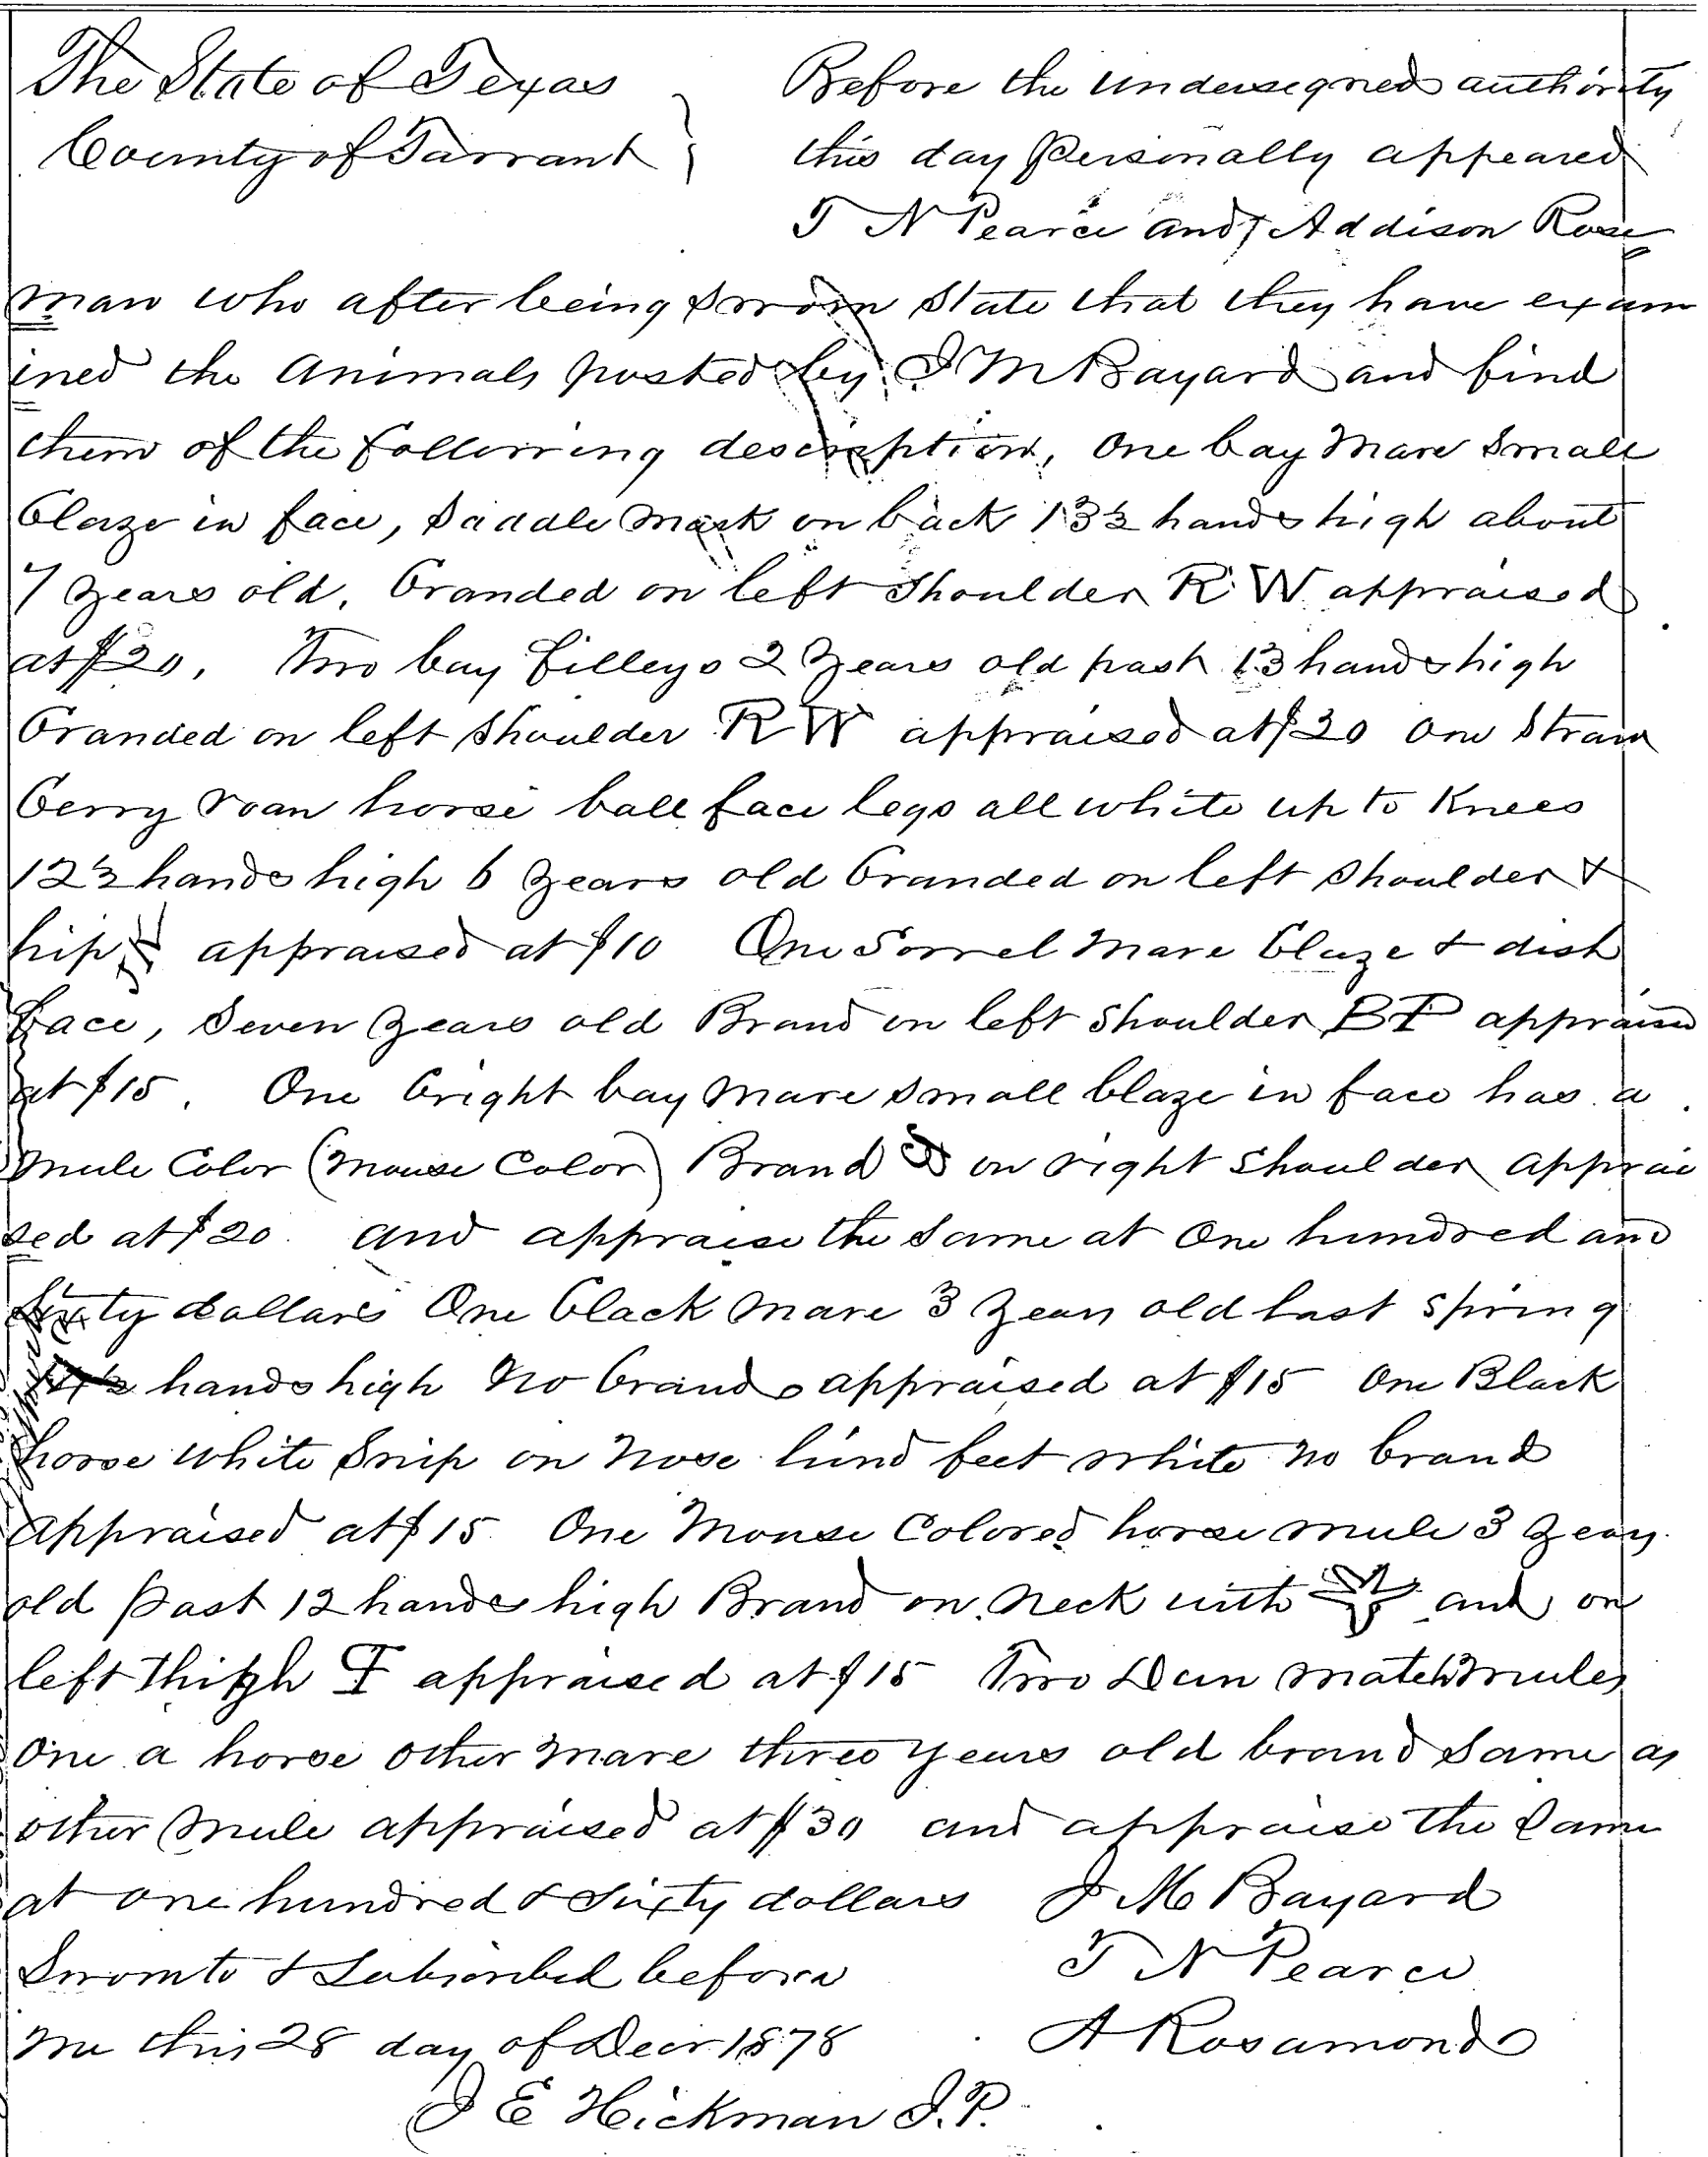 The State of Texas
County of Tarrant
Before the undersigned authority
this day personally appeared
T N Pearce and Addison Rose
man who after being sworn state that they have exam
ined the animals posted by J M Bayard and find
them of the following description, One bay mare small
blaze in face, saddle mark on back 13½ hands high about
7 years old, branded on left shoulder R W appraised
at $20, Two bay filleys 2 years old past 13 hands high
branded on left shoulder R W appraised at $20 One straw
berry roan horse ball face legs all white up to Knees
12½ hands high 6 years old branded on left shoulder &
hip appraised at $10 One Sorrel mare blaze & dish
face, Seven years old Brand on left shoulder appraised
at $15. One bright bay mare small blaze in face has a
mule Color (mouse Color) Brand on right shoulder apprai
sed at $20 and appraise the same at One hundred and
Sixty dollars One black mare 3 years old last spring
hands high no brands appraised at $15 One Black
horse white snip on nose hind feet white no brand
appraised at $15 One Mouse Colored horse mule 3 years
old past 12 hands high Brand on neck with and on
left thigh appraised at $15 Two Dun match mules
one a horse other mare three years old brand same as
other mule appraised at $30 and appraise the same
at one hundred & Sixty dollars J M Bayard
Sworn to & Subscribed before T N Pearce
me this 28 day of Decr 1878 A Rosamond
J E Hickman J.P.